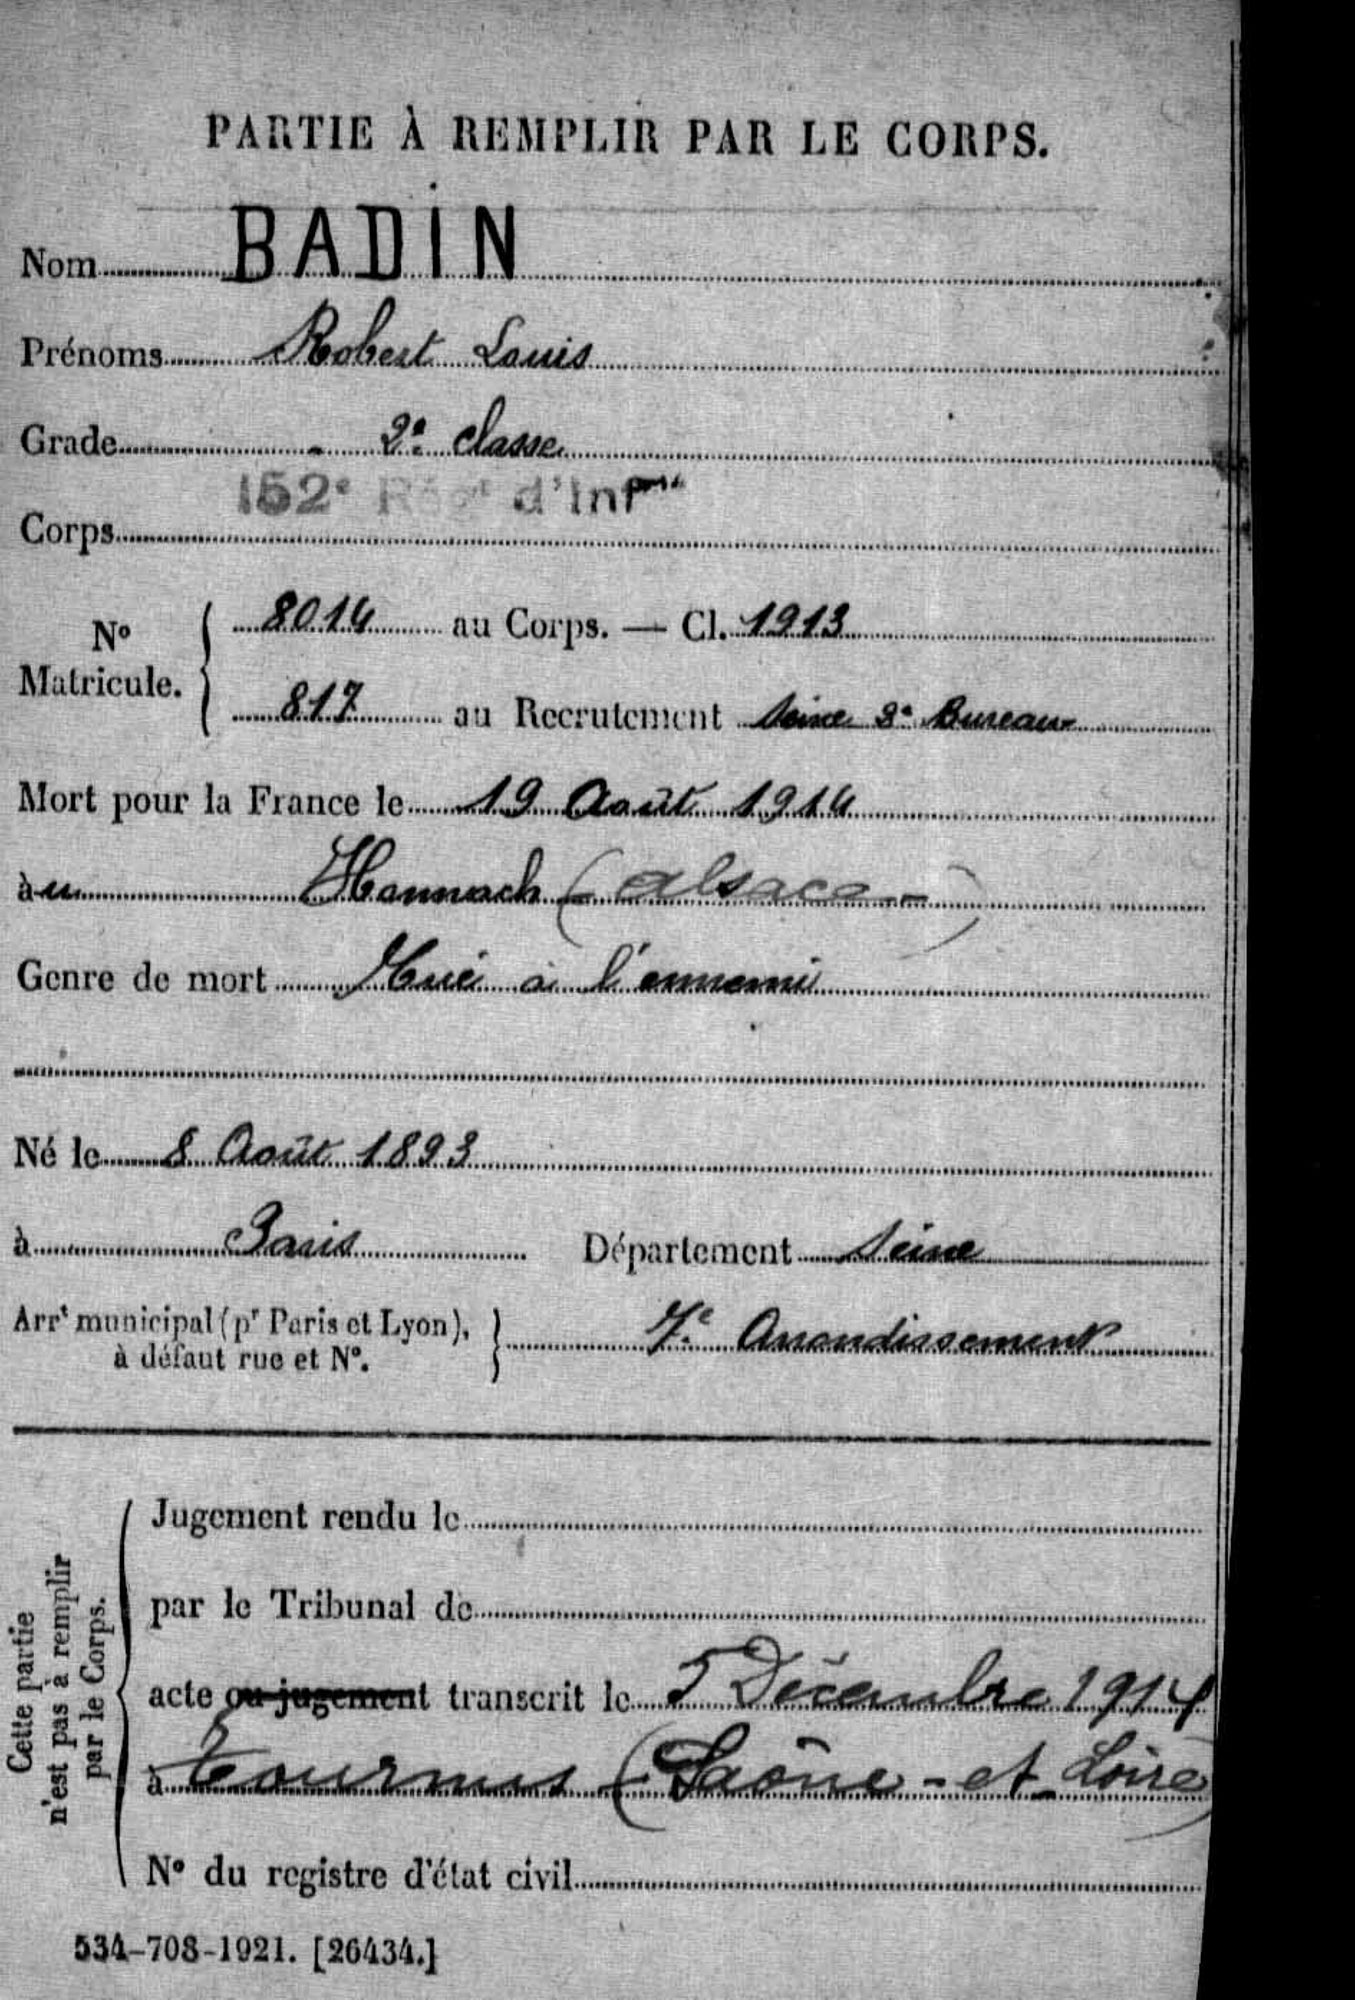 PARTIE À REMPLIR PAR LE CORPS.
Nom BADIN
Prénoms Robert Louis
Grade 2e classe
152e Régt d'Infie
Corps
No Matricule. 8014 au Corps. — Cl. 1913
817 au Recrutement Seine 3e Bureau
Mort pour la France le 19 Août 1914
à (Alsace)
Genre de mort Tué à l'ennemi
Né le 8 Août 1893
à Paris Département Seine
Arrt municipal (pr Paris et Lyon), à défaut rue et No. 7e Arrondissement
Cette partie n'est pas à remplir par le Corps.
Jugement rendu le
par le Tribunal de
acte ou jugement transcrit le 5 Décembre 1914
à Tournus (Saône-et-Loire)
No du registre d'état civil
534-708-1921. [26434.]